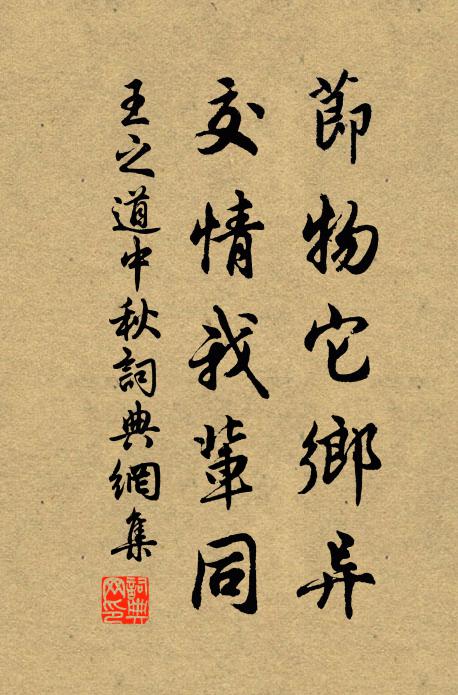 節物它鄉异
交情我輩同
王之道中秋詞典網集
詞典網印